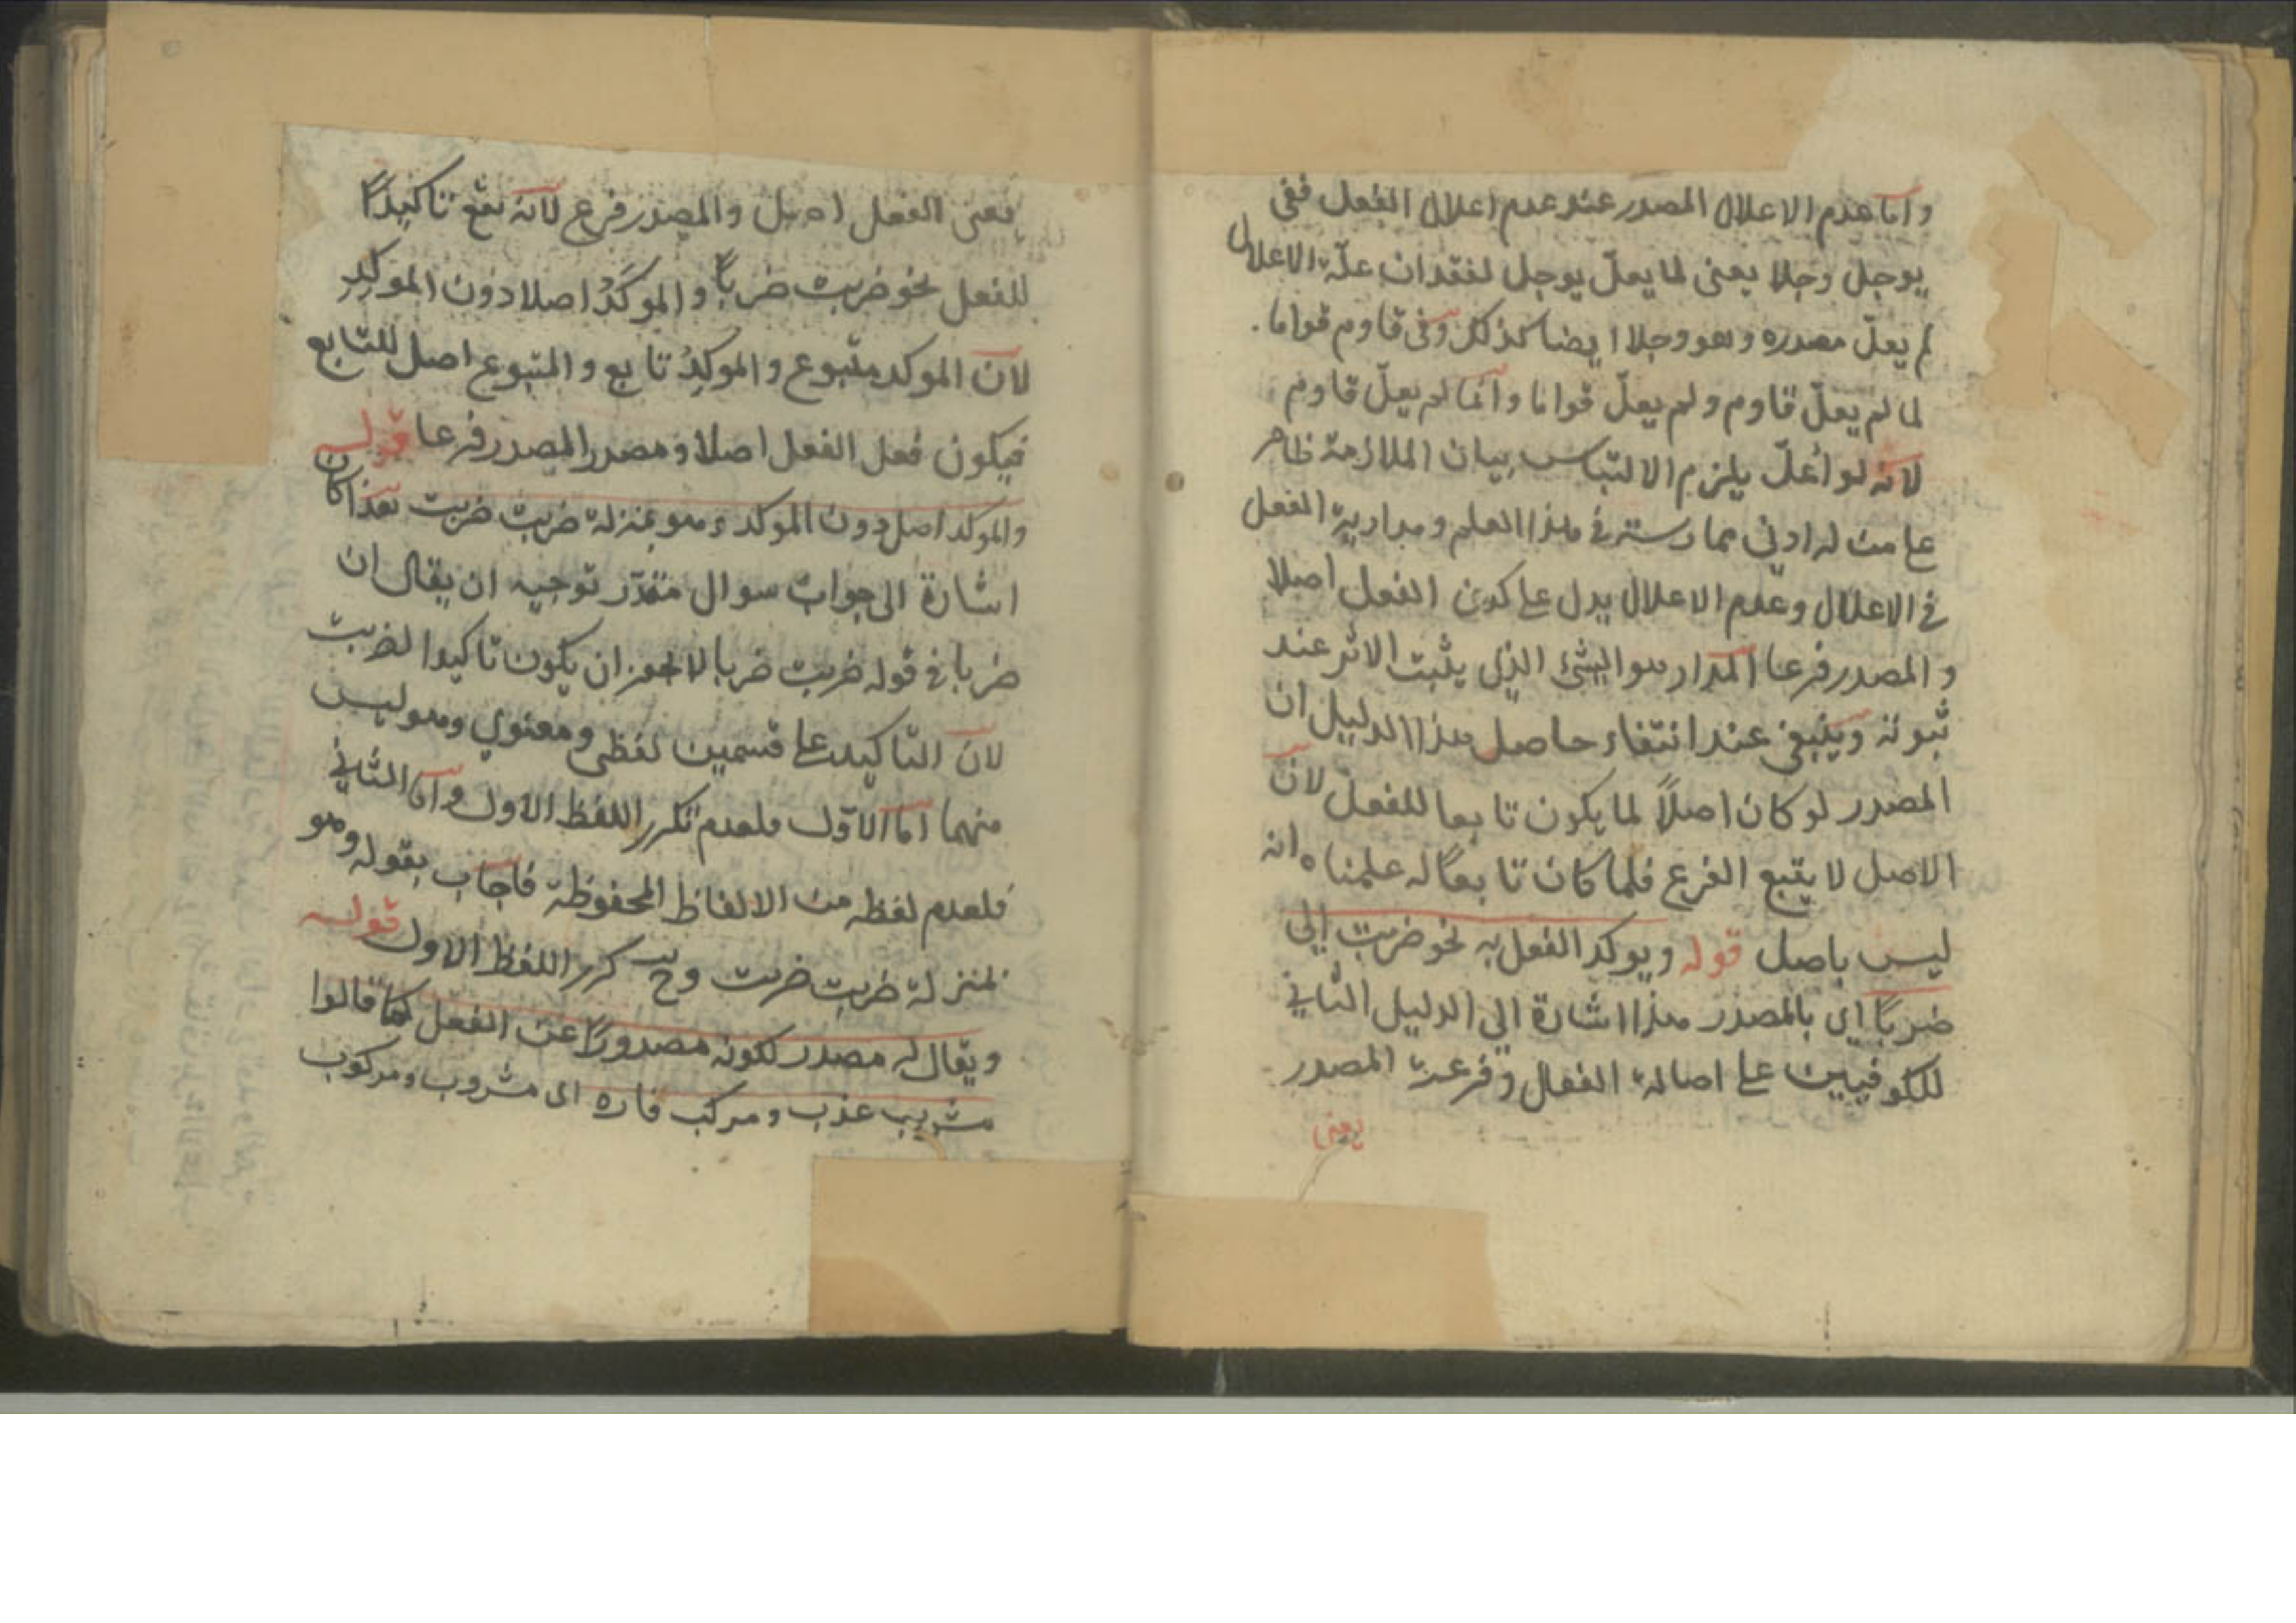 واما عدم الاعلال المصدر عند عدم اعلال الفعل ففى
يوجل وجلا يعنى لما يعلّ يوجل لفقدان علّة الاعلال
لم يعلّ مصدره وهو وجلا ايضا كذلك وفى قاوم قواما .
لما لم يعلّ قاوم ولم يعلّ قواما وانما لم يعلّ قاوم
لانه لو أعلّ يلزم الالتباس بيان الملازمة ظاهر
على من له ادنى ممارسته فى هذا العلم ومدارية الفعل
فى الاعلال وعدم الاعلال يدل على كون الفعل اصلا
والمصدر فرعا المدار هو الشئ الذى يثبت الاثر عند
ثبوته وينبغى عند انتفاء حاصل هذا الدليل ان
المصدر لو كان اصلاً لما يكون تابعا للفعل لانّ
الاصل لا يتبع الفرع فلما كان تابعًا له علمنا ه انه
ليس باصل قوله ويوكد الفعل به نحو ضربت الى
ضربًا اى بالمصدر هذا اشارة الى الدليل الثانى
للكوفيين على اصالة الفعال وفرعية المصدر
يعنى
يعنى الفعل اصل والمصدر فرع لانه يقع تاكيدًا
للفعل نحو ضربت ضربًا والموكَّدُ اصلا دون الموكِد
لانّ الموكد متبوع والموكِدُ تابع والمتبوع اصل للتابع
فيكون فعل الفعل اصلا ومصدر المصدر فرعا قوله
والموكد اصل دون الموكد وهو بمنزلة ضربت ضربت هذا كان
اشارة الى جواب سوال مقدّر توجيه ان يقال ان
ضربا فى قوله ضربت ضربا لا يجوز ان يكون تاكيدا لضربت
لانّ التاكيد على قسمين لفظى ومعنوي وهو ليس
منهما امّا الاوّل فلعدم تكرر اللفظ الاول وامّا الثانى
فلعدم لفظه من الالفاظ المحفوظة فاجاب بقوله وهو
بمنزلة ضربت ضربت وح كرر اللفظ الاول قوله
ويقال له مصدر لكونه مصدورًا عن الفعل كما قالوا
مشرب عذب ومركب فاره اى مشروب ومركوب